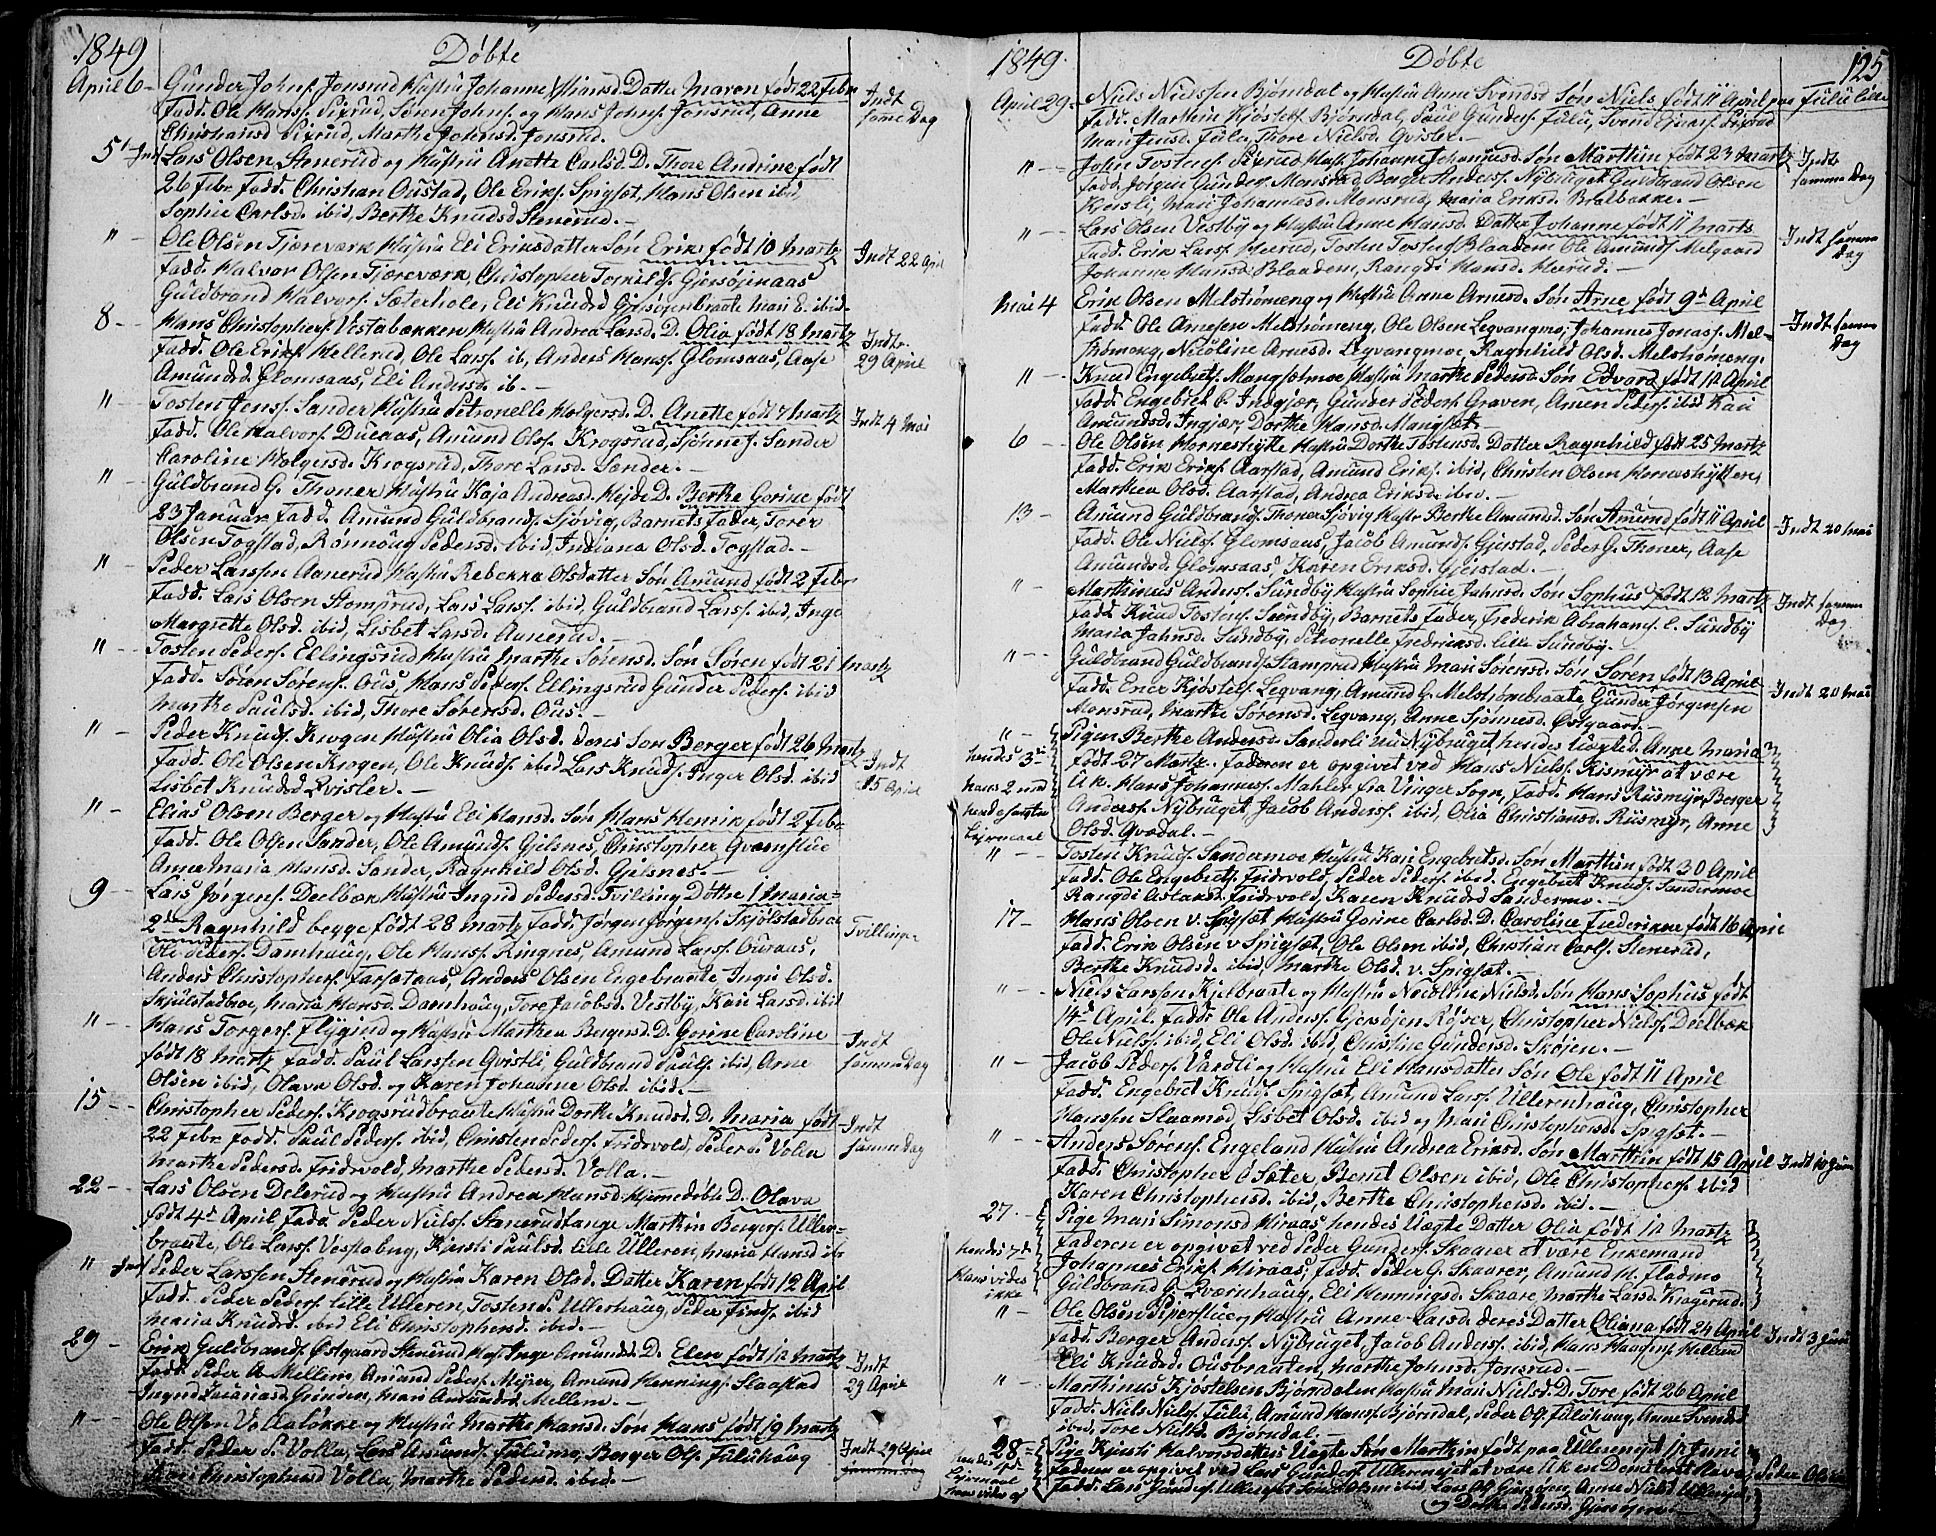 1849 Døbte
April 6 - Gunder Johns. Jonsrud Hustru Johanne Hansd. Datter Maren født 22 Febr
Fadd. Ole Hans. Sifrud, Søren Johns. og Hans Johns. Jonsrud, Anne
Christiansd. Sifrud, Marthe Johnsd. Jonsrud.
Indt samme Dag
5 - Lars Olsen Stenerud og Hustru Anette Carlsd. D. Thore Andrine født
26 Febr. Fadd. Christian Oustad, Ole Eriks. Spigset, Hans Olsen ibid,
Sophie Carlsd. ibid, Berthe Knudsd Stenerud. -
" Ole Olsen Tjæreværk Hustru Eli Eriksdatter Søn Erik født 10 Martz
Fadd. Halvor Olsen Tjæreværk, Christopher Torkilds. Gjersøjenaas
Guldbrand Halvors. Sæterhole, Eli Knudsd Gjersøjenbraate Mari E. ibid -
Indt 22 April
8 - Hans Christophers. Vestabækken Hustru Andrea Larsd. D. Olia født 18 Martz
Fadd. Ole Eriks. Hellerud, Ole Larss. ib, Anders Hans. Glomsaas, Aase
Amundsd Glomsaas, Eli Andersd. ib. -
Indt. 29 April
" Tosten Jens. Sander Hustru Petronelle Holgersd. D. Anette født 7 Martz
Fadd. Ole Halvors. Duenas, Amund Ols. Krogsrud, Sjønne J. Sander
Caroline Holgersd. Krogsrud, Thore Larsd. Sander. -
Indt 4 Mai
" Guldbrand G. Thoner Hustru Kaja Andreasd. Hejde D. Berthe Gorine født
23 Januar Fadd. Amund Guldbrands. Sjøvig, Barnets Fader, Torer
Olsen Togstad, Rønnoug Pedersd. ibid Indiana Olsd. Togstad. -
" Peder Larssen Aanerud Hustru Rebekka Olsdatter Søn Amund født 2 Febr
Fadd. Lars Olsen Stomprud, Lars Larss. ibid, Guldbrand Larss. ibid, Inge
Margrethe Olsd. ibid, Lisbet Larsd. Aanerud. -
" Tosten Peders. Ellingsrud Hustru Marthe Sørensd. Søn Søren født 21 Martz
Fadd. Søren Sørens. Ous, Hans Peders. Ellingsrud Gunder Peders. ibid
Marthe Paulsd. ibid, Thore Sørensd. Ous. -
" Peder Knuds. Krogen Hustru Olia Olsd. deres Søn Berger født 26 Martz
Fadd. Ole Olsen Krogen, Ole Knuds. ibid Lars Knuds. Inger Olsd. ibid
Lisbet Knudsd Qvisler. -
Indt 15 April
" Elias Olsen Berger og Hustru Eli Hansd. Søn Hans Henrik født 2 Febr
Fadd. Ole Olsen Sander, Ole Amunds. Gjelsnes, Christopher Qværnslue
Anne Maria Hansd. Sander, Ragnhild Olsd. Gjelsnes. -
9 - Lars Jørgens. Deelbæk Hustru Ingrid Pedersd. Tvilling Døttre 1 Maria -
2de Ragnhild begge født 28 Martz Fadd. Jørgen Jørgens. Skjølstadbraa
Ole Peders. Damhaug, Ole Hans. Ringnes, Amund Larss. Ouraas,
Anders Christophers. Farsetaas, Anders Olsen Engebraate Ingri Olsd.
Skjulstadboe, Maria Hansd. Damhaug, Tore Jacobsd. Vestby, Kari Larsd. ibid
Tvillinger
" Hans Torgers. Flygind og Hustru Marthea Bergersd. D. Gorine Caroline
født 18 Martz Fadd. Paul Larssen Qvistli, Guldbrand Pauls. ibid, Arne
Olsen ibid, Olava Olsd. og Karen Johanne Olsd. ibid. -
Indt samme Dag
15 - Christopher Peders. Krogsrudbraate Hustru Dorthe Knudsd. D. Maria født
22 Febr. Fadd. Paul Peders. ibid, Christen Peders. Fridsvold, Peder P. Volla
Marthe Pedersd. Fridsvold, Marthe Pedersd. Volla. -
Indt samme Dag
22 - Lars Olsen Delerud og Hustru Andrea Hansd. hjemmedøbte D. Olava
født 4de April Fadd. Peder Niels. Stenerudtange Marthin Bergers. Uller-
braate, Ole Larss. Vestabug, Kjersti Paulsd. lille Ulleren, Maria Hansd ib.
" Peder Larssen Stenerud og Hustru Karen Olsd. Datter Karen født 12 April
Fadd. Peder Peders. lille Ulleren, Tosten P. Ullerhaug, Peder Finds. ibid
Maria Knudsd. ibid Eli Christophersd. ibid. -
29 - Erik Guldbrands. Østgaard Stenerud Hust. Inge Amundsd. D. Elen født 12 Martz
Fadd. Peder A. Mellem, Amund Peders. Myrer, Amund Hennings. Slaastad
Ingrid Zachariasd. Grinden, Mari Amundsd. Mellem. -
Indt 29 April
" Ole Olsen Volleløkke og Hustru Marthe Hansd. Søn Hans født 19 Martz
Fadd. Peder P. Volla, Lars Amunds. Fulumo, Berger Ols. Fuluhaug
Mari Christophersd Volla, Marthe Pedersd. ibid. -
Indt 29 April samme Dag
1849. Døbte 125
April 29 - Niels Nielssen Bjørndal og Hustru Anne Svendsd Søn Niels født 11 April paa Fulu lille
Fadd. Marthin Kjøstels. Bjørndal, Paul Gunders. Fulu, Svend Ejnars. Sifrud
Mari Jensd. Fulu, Thore Nielsd. Qvisler. -
" - John Tostens. Sifrud Hust. Johanne Johannesd. Søn Marthin født 23 Martz
Fadd. Jørgen Gunders. Monsrud, Berger Anders. Nybruget Guldbrand Olsen
Kjersli Mari Johannesd. Monsrud, Maria Eriksd. Bralbakke. -
Indt samme Dag
" - Lars Olsen Vestby og Hustru Anne Hansd. Datter Johanne født 11 Marts
Fadd. Erik Larss. Hoerud, Tosten Tostens. Blaadem Ole Amunds. Melgaard
Johanne Hansd. Blaadem, Rangdi Hansd. Hoerud. -
Indt samme Dag
Mai 4 Erik Olsen Melstrømeng og Hustru Anne Arnesd. Søn Arne født 9de April
Fadd. Ole Arnesen Melstrømeng, Ole Olsen Legvangmo, Johannes Jonass. Mel-
strømeng, Nicoline Arnesd. Legvangmoe, Ragnhild Olsd. Melstrømeng.
Indt samme Dag
" - Knud Engebrets. Mangsetmoe Hustru Marthe Pedersd. Søn Edvard født 12 April
Fadd. Engebret P. Indgjær, Gunder Peders. Graven, Amen Peders. ibid Kari
Amundsd. Ingjær, Dorthe Hansd. Mangset. -
6 - Ole Olsen Horneshytte Hustru Dorthe Tostensd. Datter Ragnhild født 25 Martz
Fadd. Erik Eriks. Aarstad, Amund Eriks. ibid, Christen Olsen Horneshytten,
Marthea Olsd. Aarstad, Andrea Eriksd. ibid. -
13 - Amund Guldbrands. Thoner Sjøvig Hustr. Berthe Amundsd. Søn Amund født 11 April
Fadd. Ole Niels. Glomsaas, Jacob Amunds. Gjerstad, Peder G. Thoner, Aase
Amundsd. Glomsaas, Karen Eriksd. Gjerstad. -
Indt 20 Mai
" - Marthinus Anders. Sundby Hustru Sophie Jahnsd. Søn Sophus født 12 Martz
Fadd. Knud Tostens. Sundby, Barnets Fader, Frederik Abrahams. l. Sundby
Maria Jahnsd. Sundby, Petronelle Fredriksd. lille Sundby.
Indt samme Dag
" - Guldbrand Guldbrands. Stamprud Hustru Mari Sørensd. Søn Søren født 13 April
Fadd. Ener Kjøstels. Legvang, Amund G. Melstrømbraate Gunder Jørgensen
Monsrud, Marthe Sørensd. Legvang, Anne Sjønnesd. Østgaard. -
Indt 20 Mai
" - Pigen Berthe Andersd. Sanderli nu Nybruget hendes Uægted. Anne Maria
født 27 Martz. Faderen er opgivet ved Hans Niels. Rismyr at være
U.k. Hans Johannes. Mahler fra Vinger Sogn, Fadd. Hans Riismyr, Berger
Anders. Nybruget, Jacob Anders. ibid, Olia Christiansd. Riismyr, Anne
Olsd. Qvædal. -
hendes 3die hans 2 med hende første Leiermaal
" - Tosten Knuds. Sandermoe Hustru Kari Engebretsd. Søn Marthin født 30 April
Fadd. Ole Engebrets. Fridsvold, Peder Peders. ibid. Engebret Knuds. Sandermoe
Rangdi Aslaksd. Fridsvold, Karen Knudsd Sandermo. -
17 - Hans Olsen v. Spigset Hustru Gorine Carlsd. D. Caroline Frederikke født 16 April
Fadd. Erik Olsen v Spigset, Ole Olsen ibid, Christian Carls. Stenerud,
Berthe Knudsd. ibid, Marthe Olsd. v. Spigset. -
" - Niels Larssen Kjelbraate og Hustru Nicoline Nielsd. Søn Hans Sophus født
14de April Fadd. Ole Anders. Gjersøjen Røjser, Christopher Niels. Deelbæk
Ole Niels. ibid, Eli Olsd. ibid, Christine Gundersd. Skøjen. -
" - Jacob Peders. Vardli og Hustru Eli Hansdatter Søn Ole født 11 April
Fadd. Engebret Knuds. Spigset, Amund Larss. Ullerenhaug, Christopher
Hanssen Slaamod, Lisbet Olsd. ibid og Mari Christophersd. Spigset. -
" - Anders Sørens. Engeland Hustru Andrea Eriksd. Søn Marthin født 15 April
Fadd. Christopher O Sæter, Bernt Olsen ibid, Ole Christophers. ibid
Karen Christophersd. ibid, Berthe Christophersd. ibid. -
Indt 10 Juni
27. - Pige Mari Simonsd Hiraas, hendes Uægte Datter Olia født 12 Martz
Faderen er opgivet ved Peder Gunders. Skaarer at være Enkemand
Johannes Eriks. Hiraas, Fadd. Peder G. Skaarer, Amund H. Fladmo
Guldbrand G. Qværnhaug, Eli Henningsd. Skaare, Marthe Larsd. Kragerud.
hendes 7de Hans vides ikke
" - Ole Olsen Piperslue og Hustru Anne Larsd. deres Datter Oliana født 24 April
Fadd. Berger Anders. Nybruget, Jacob Anders. ibid, Hans Haagens. Mellem
Eli Knudsd. Ousbraaten, Marthe Johnsd. Jonsrud. -
Indt 3 Juni
" - Marthinus Kjøstelsen Bjørndalen Hustru Mari Nielsd. D. Tore født 26 April
Fadd. Niels Niels. Fulu, Amund Hans. Bjørndal, Peder Ols. Fuluhaug, Anne Svendsd.
ibid, Tore Nielsd. Bjørndal. -
28 - Pige Kjersti Halvorsdatters Uægte Søn Marthin født paa Ullerenget 12 Juni
Faderen er opgivet ved Lars Gunders. Ullerenget at være U.k. en Demitteret Peder Olsen
Fadd. Lars Gunders. Ullerenget, Anne Nielsd. Ullerenget,
og Dorthe Pedersd. Gjersøjen. -